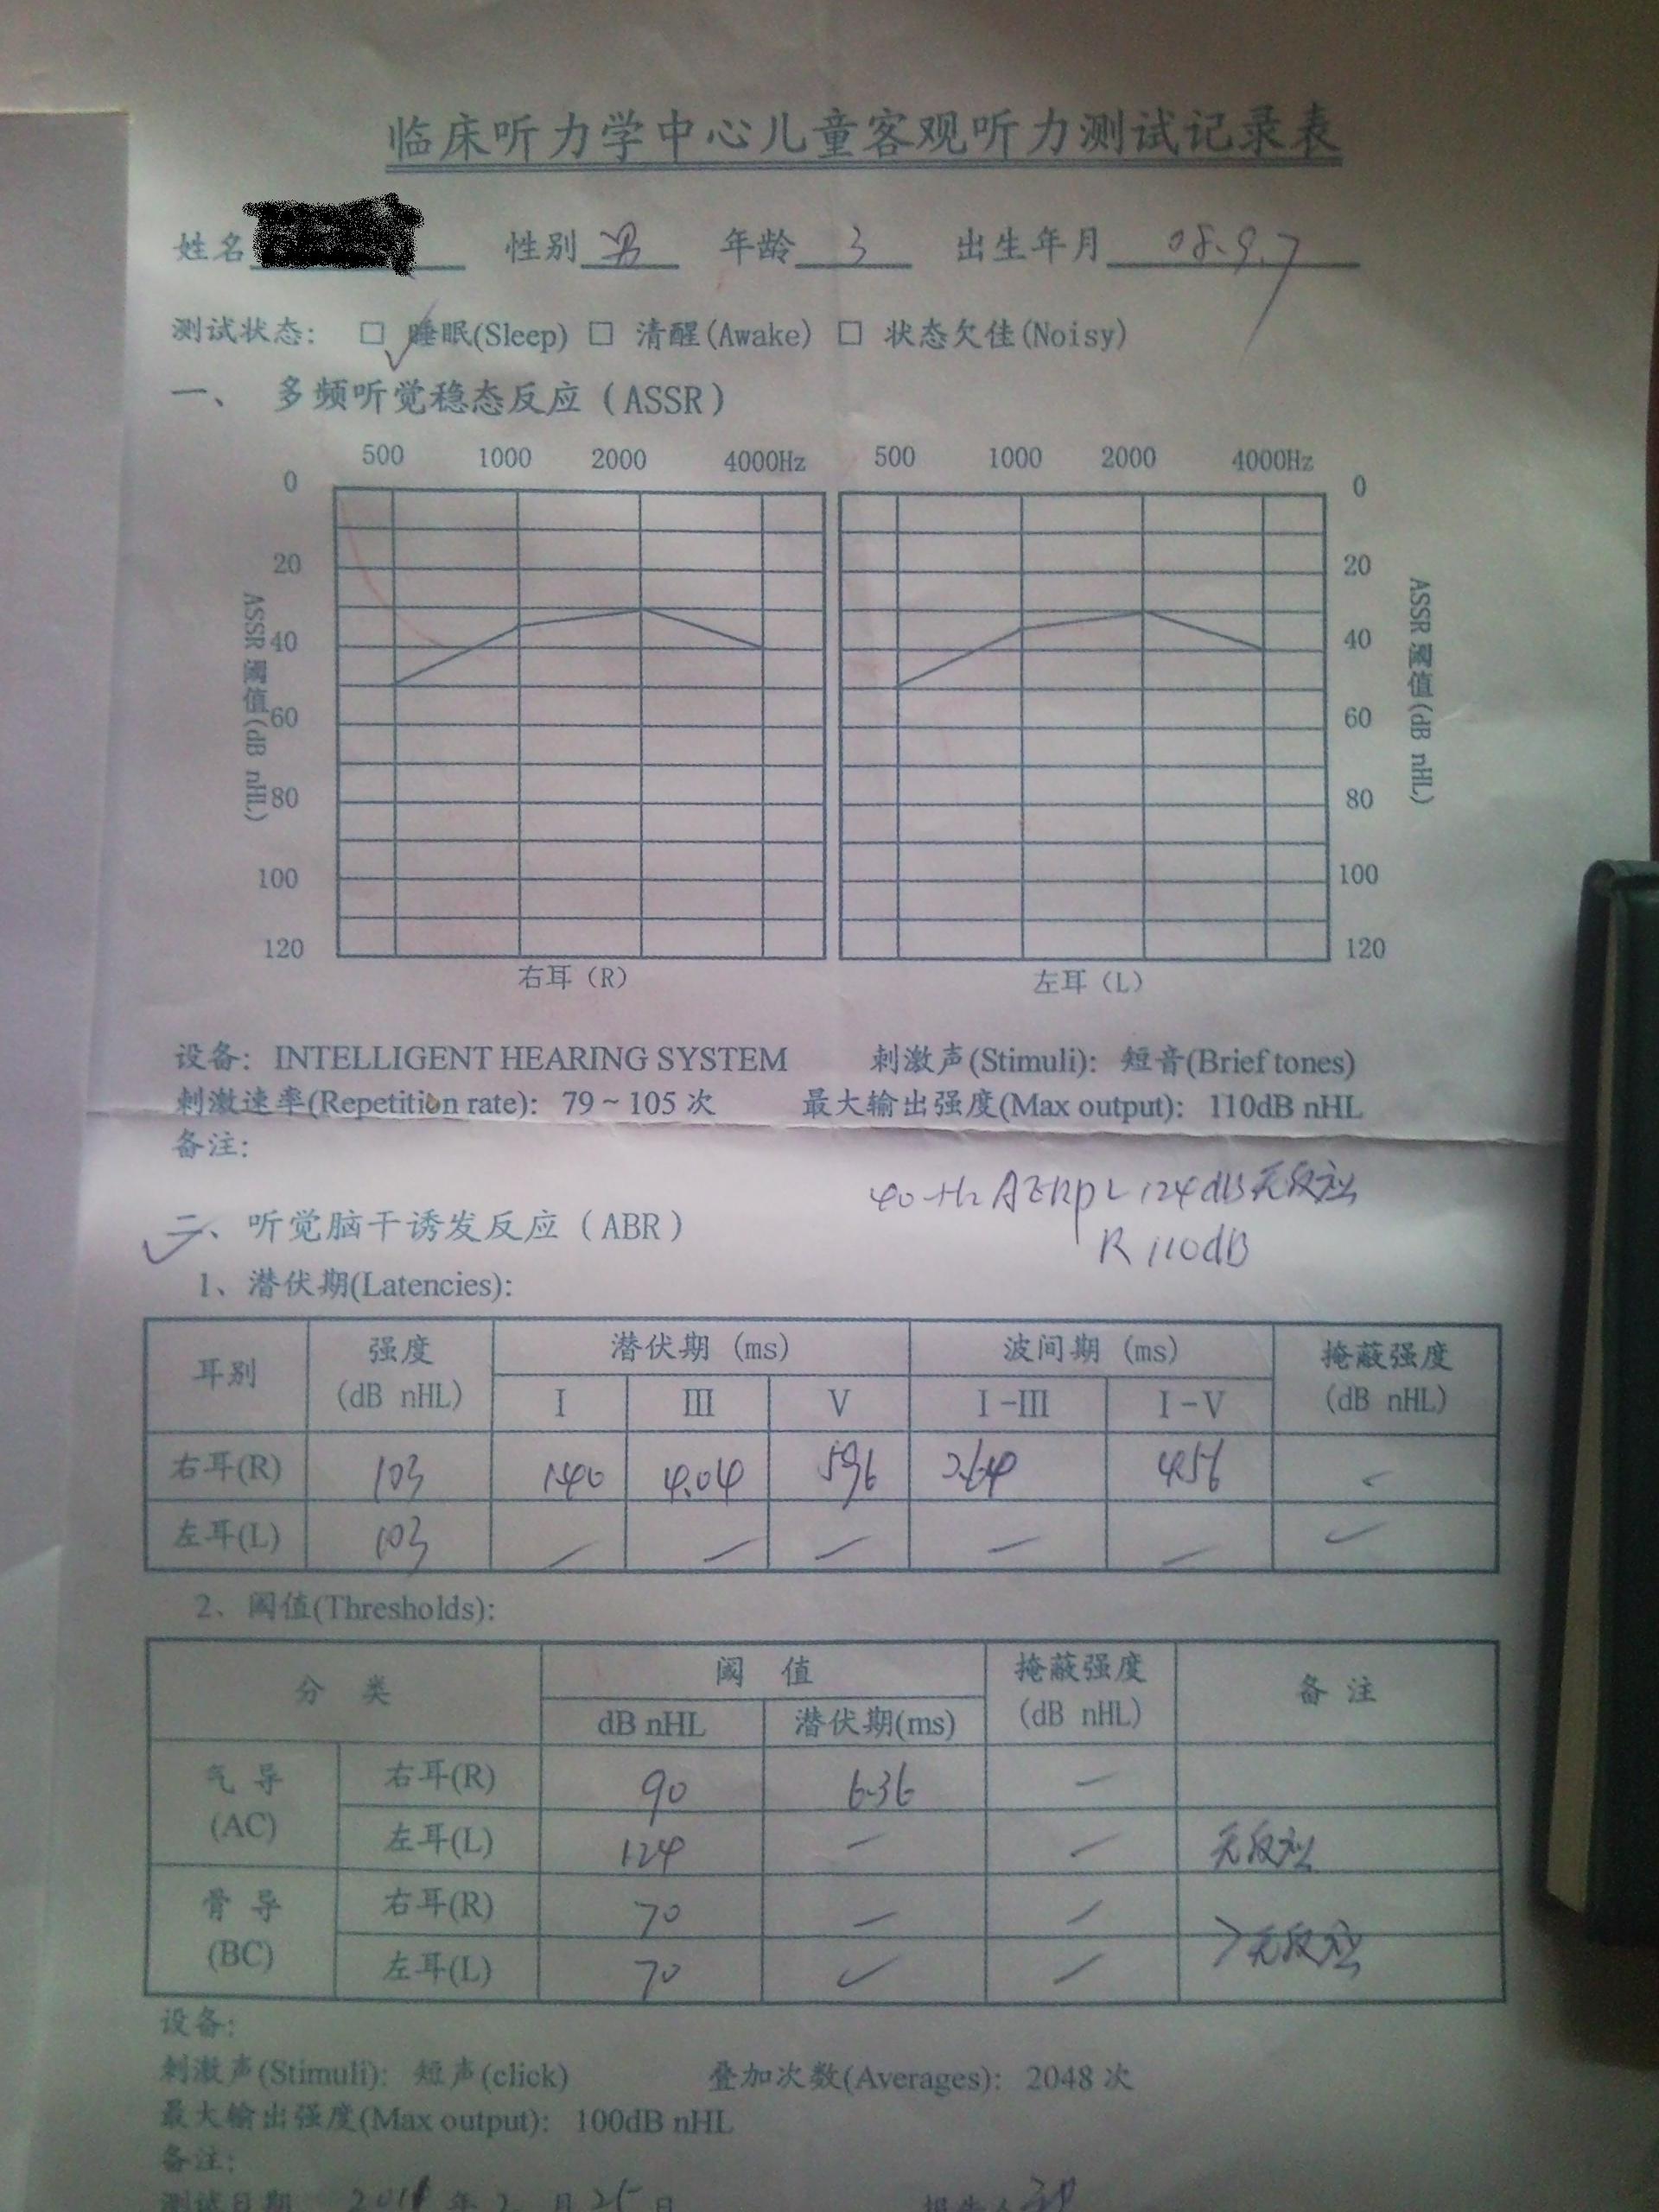 临床听力学中心儿童客观听力测试记录表
姓名 性别 男 年龄 3 出生年月 08.9.7
测试状态: □ 睡眠(Sleep) □ 清醒(Awake) □ 状态欠佳(Noisy)
一、 多频听觉稳态反应(ASSR)
500 1000 2000 4000Hz 500 1000 2000 4000Hz
0 0
20 20
40 40
60 60
80 80
100 100
120 120
ASSR 阈值(dB nHL)
ASSR 阈值(dB nHL)
右耳(R) 左耳(L)
设备: INTELLIGENT HEARING SYSTEM 刺激声(Stimuli): 短音(Brief tones)
刺激速率(Repetition rate): 79~105 次 最大输出强度(Max output): 110dB nHL
备注:
40Hz AERP L 124dB 无反应
R 110dB
二、听觉脑干诱发反应(ABR)
1、潜伏期(Latencies):
耳别 强度 (dB nHL) 潜伏期 (ms) 波间期 (ms) 掩蔽强度 (dB nHL)
I III V I-III I-V
右耳(R) 103 1.40 4.04 5.96 2.64 4.56
左耳(L) 103 — — — — —
2、阈值(Thresholds):
分 类 阈 值 掩蔽强度 (dB nHL) 备 注
dB nHL 潜伏期(ms)
气 导 (AC) 右耳(R) 90 6.36 —
左耳(L) 124 — — 无反应
骨 导 (BC) 右耳(R) 70 — —
左耳(L) 70 — >无反应
设备:
刺激声(Stimuli): 短声(click) 叠加次数(Averages): 2048 次
最大输出强度(Max output): 100dB nHL
备注:
测试日期 2011 年 2 月 25 日 报告人